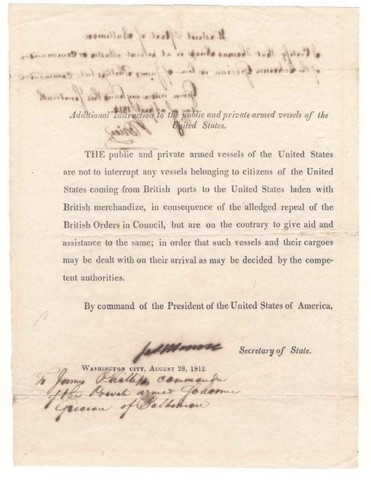 Additional Instruction to the public and private armed vessels of the
United States.
THE public and private armed vessels of the United States
are not to interrupt any vessels belonging to citizens of the United
States coming from British ports to the United States laden with
British merchandize, in consequence of the alledged repeal of the
British Orders in Council, but are on the contrary to give aid and
assistance to the same; in order that such vessels and their cargoes
may be dealt with on their arrival as may be decided by the compe-
tent authorities.
By command of the President of the United States of America,
Jas Monroe
Secretary of State.
WASHINGTON CITY, AUGUST 28, 1812.
To James Phillips commander
of the Private armed Schooner
Grecian of Baltimore